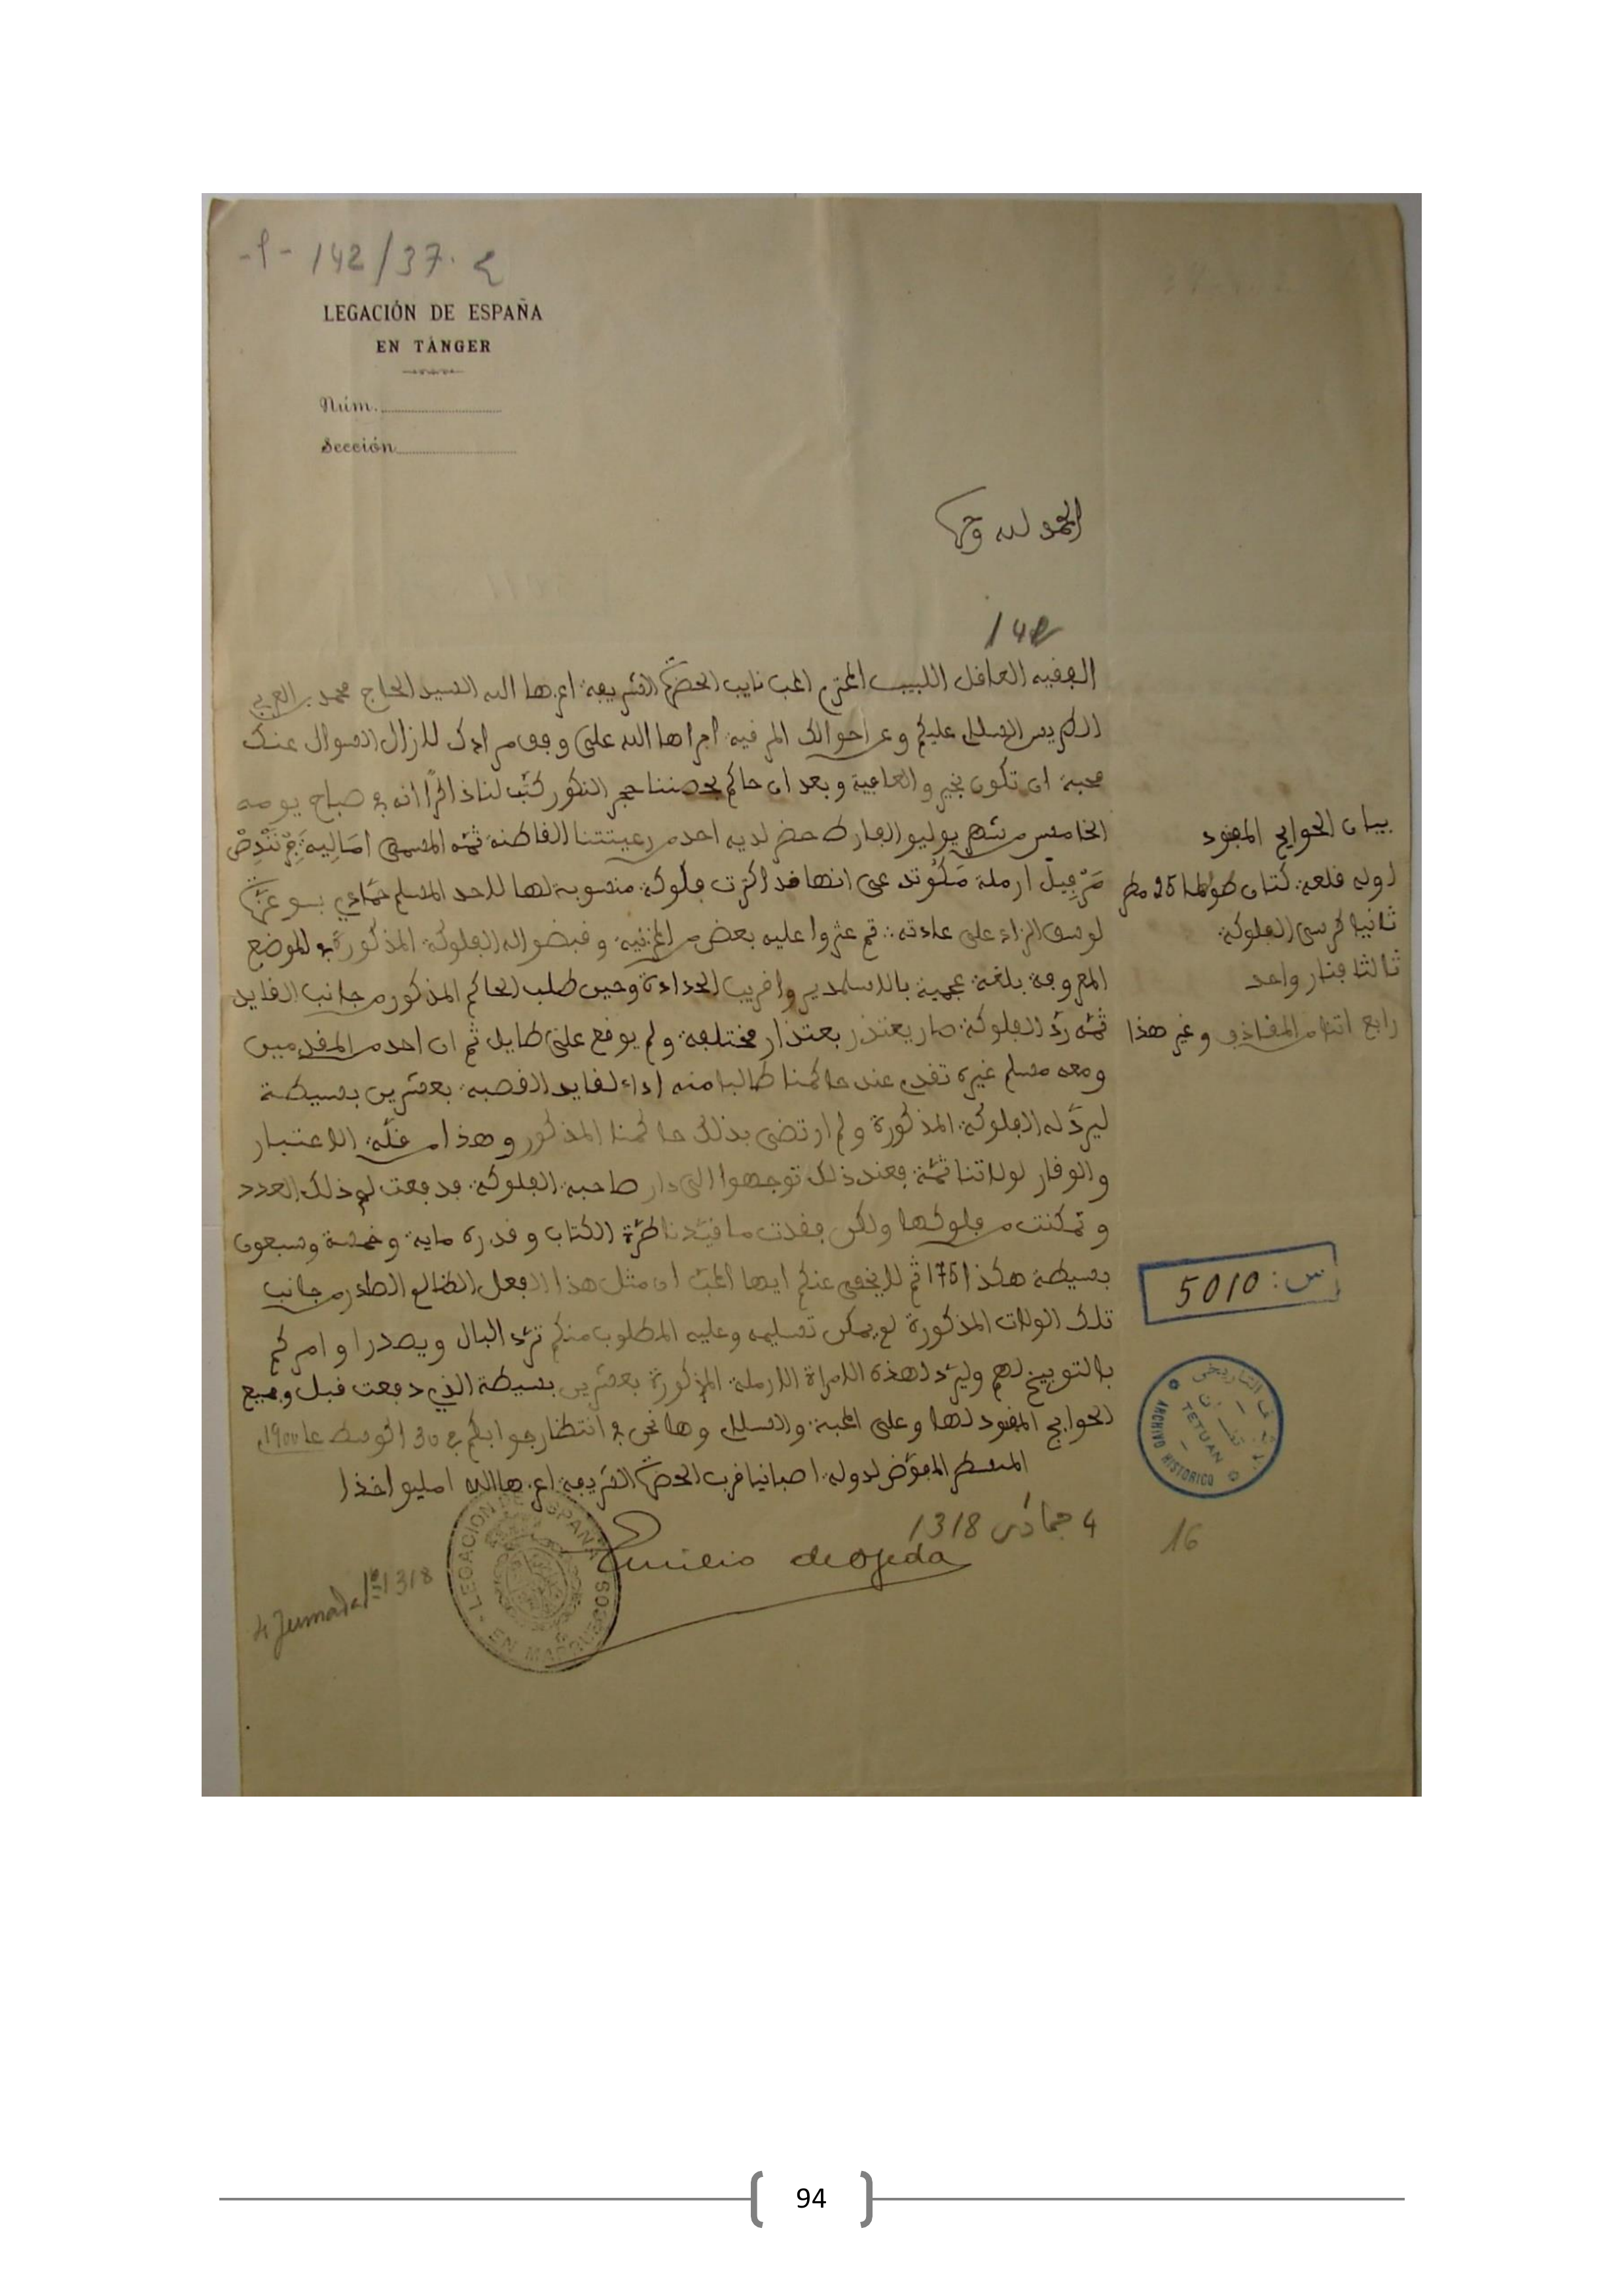 -9- 142/37. ع
LEGACIÓN DE ESPAÑA
EN TÁNGER
Núm.
Sección
الحمد لله وحده
142
الفقيه العاقل اللبيب المحترم المحب نايب الحضرة الشريفة اعزها الله السيد الحاج محمد بن العربي
الطريس السلام عليكم وعن احوالك المرضية اجراها الله على وفق مرادك للازال السوال عنك
محبة ان تكون بخير والعافية وبعد ان حاكم بحصننا حجر النكور كتب لنا ذاكرًا انه في صباح يومه
الخامس من شهر يوليو الفارط حضر لديه احد من رعيتنا القاطنة ثمه المسمى امَاليه
ارملة على انها قد اكرت فلوكة منسوبة لها للاحد المسلم حمادي بوعزة
لوسق الزاد على عادته ثم عثروا عليه بعض من المخزنية وقبضوا له الفلوكة المذكورة في الموضع
المعروفة بلغة عجمية بالاسلمدير واقريب الحدادة وحين طلب الحاكم المذكور من جانب القايد
ثمه ردّ الفلوكة صار يعتذر بعتذار مختلفة ولم يوقع على طايل ثم ان احد من المقدمين
ومعه مسلم غيره تقدم عند حاكمنا طالبا منه اداء لقايد القصبة بعشرين بسيطة
ليردّ له الفلوكة المذكورة ولم ارتضى بذلك حاكمنا المذكور وهذا من قلّة الاعتبار
والوقار لولاتنا ثمّة فعند ذلك توجهوا الى دار صاحبة الفلوكة فدفعت لهم ذلك العدد
وتمكنت من فلوكها ولكن فقدت ما قيّدنا طرّة الكتاب وقدره ماية وخمسة وسبعون
بسيطة هكذا 175 ثم لا يخفى عنكم ايها المحبّ ان مثل هذا الفعل الظالم الصادر من جانب
تلك الولات المذكورة لم يمكن تسليمه وعليه المطلوب منكم تردّ البال ويصدر اوامركم
بالتوبيخ لهم وليردّ لهذه الامراة الارملة المذكورة بعشرين بسيطة الذي دفعت قبل وجميع
الحوايج المفقود لها وعلى المحبة والسلام وها نحن في انتظار جوابكم في 30 اغوسط عام 1900
المنسطر المفوّض لدولة اصبانيا قرب الحضرة الشريفة اعزها الله امليو اخذا
4 جمادى 1318
Emilio de Ojeda
4 Jumada 1ª 1318
LEGACION DE ESPAÑA EN MARRUECOS
بيان الحوايج المفقود
لوله قلعة كتان طولها 25 مطر
ثانيا كرسى الفلوكة
ثالثا فنار واحد
رابع اثنا من المقاذف وغير هذا
س: 5010
TETUAN
ARCHIVO HISTORICO
16
94